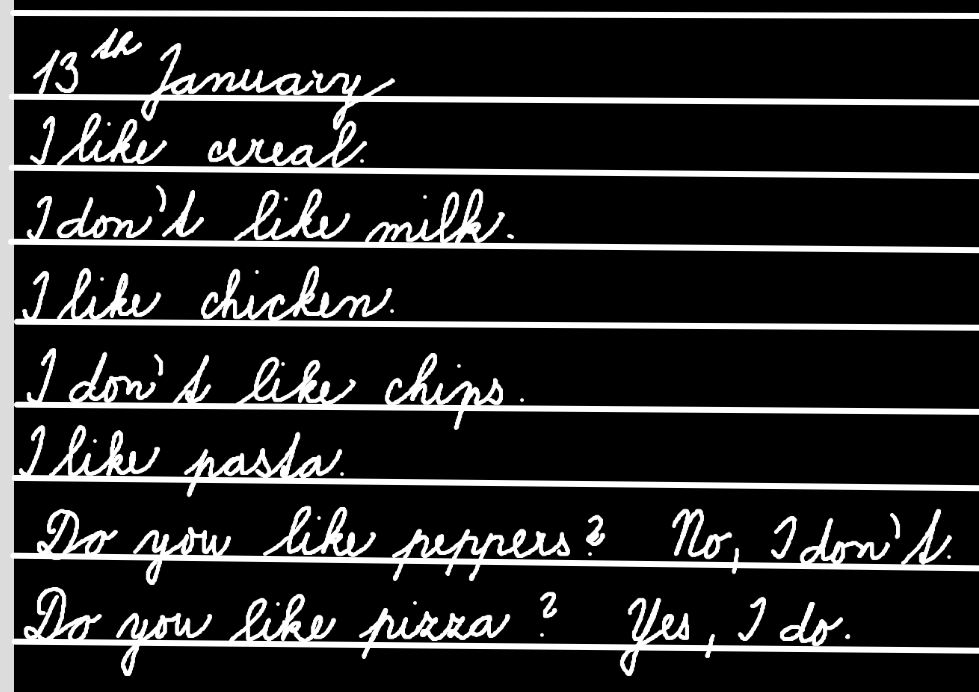 13th January
I like cereal.
I don't like milk.
I like chicken.
I don't like chips.
I like pasta.
Do you like peppers? No, I don't.
Do you like pizza? Yes, I do.